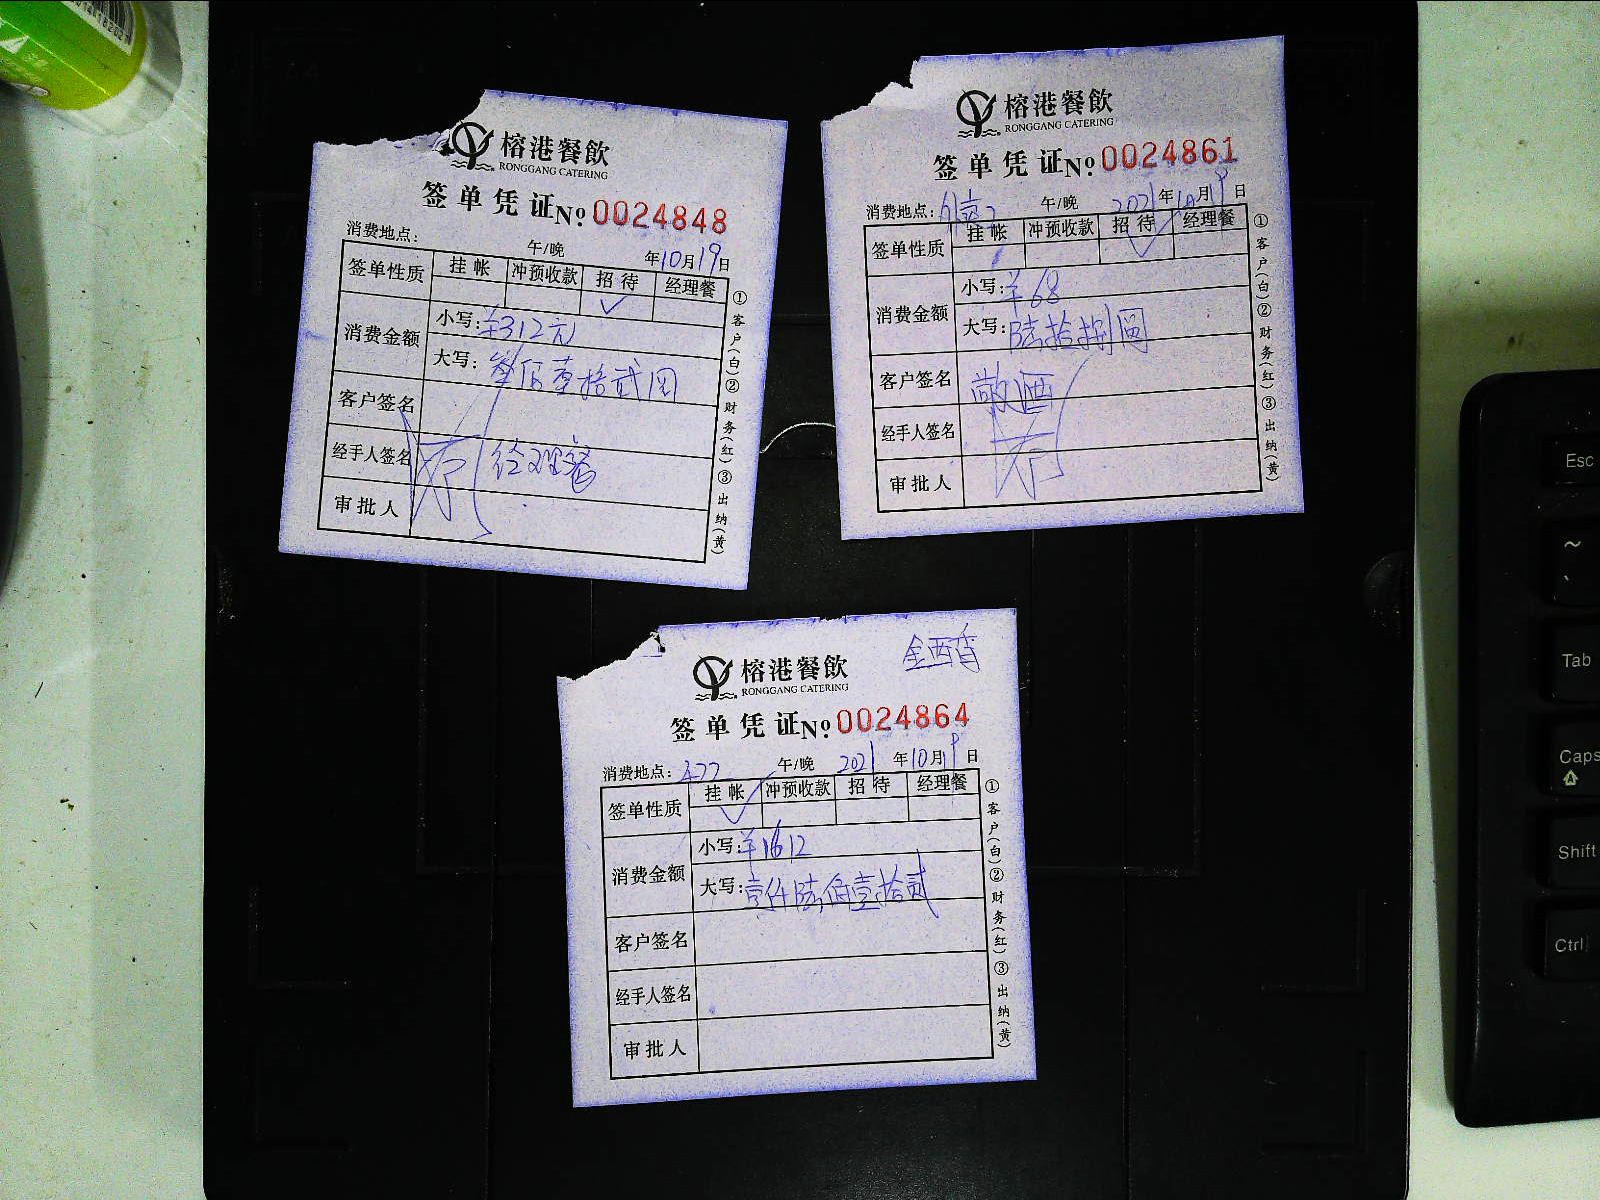 榕港餐飲
RONGGANG CATERING
签单凭证 No 0024848
消费地点: 午/晚 年10月19日
签单性质 挂帐 冲预收款 招待 经理餐
✓
消费金额 小写: ¥312元
大写: 叁佰壹拾贰圆
客户签名
经手人签名 经理餐
审批人
①客户(白)②财务(红)③出纳(黄)
榕港餐飲
RONGGANG CATERING
签单凭证 No 0024861
消费地点: 午/晚 2021年10月19日
签单性质 挂帐 冲预收款 招待 经理餐
✓
消费金额 小写: ¥68
大写: 陆拾捌圆
客户签名
经手人签名
审批人
①客户(白)②财务(红)③出纳(黄)
金西香
榕港餐飲
RONGGANG CATERING
签单凭证 No 0024864
消费地点: 午/晚 2021年10月19日
签单性质 挂帐 冲预收款 招待 经理餐
✓
消费金额 小写: ¥1612
大写: 壹仟陆佰壹拾贰
客户签名
经手人签名
审批人
①客户(白)②财务(红)③出纳(黄)
Esc
~
Tab
Caps
Shift
Ctrl